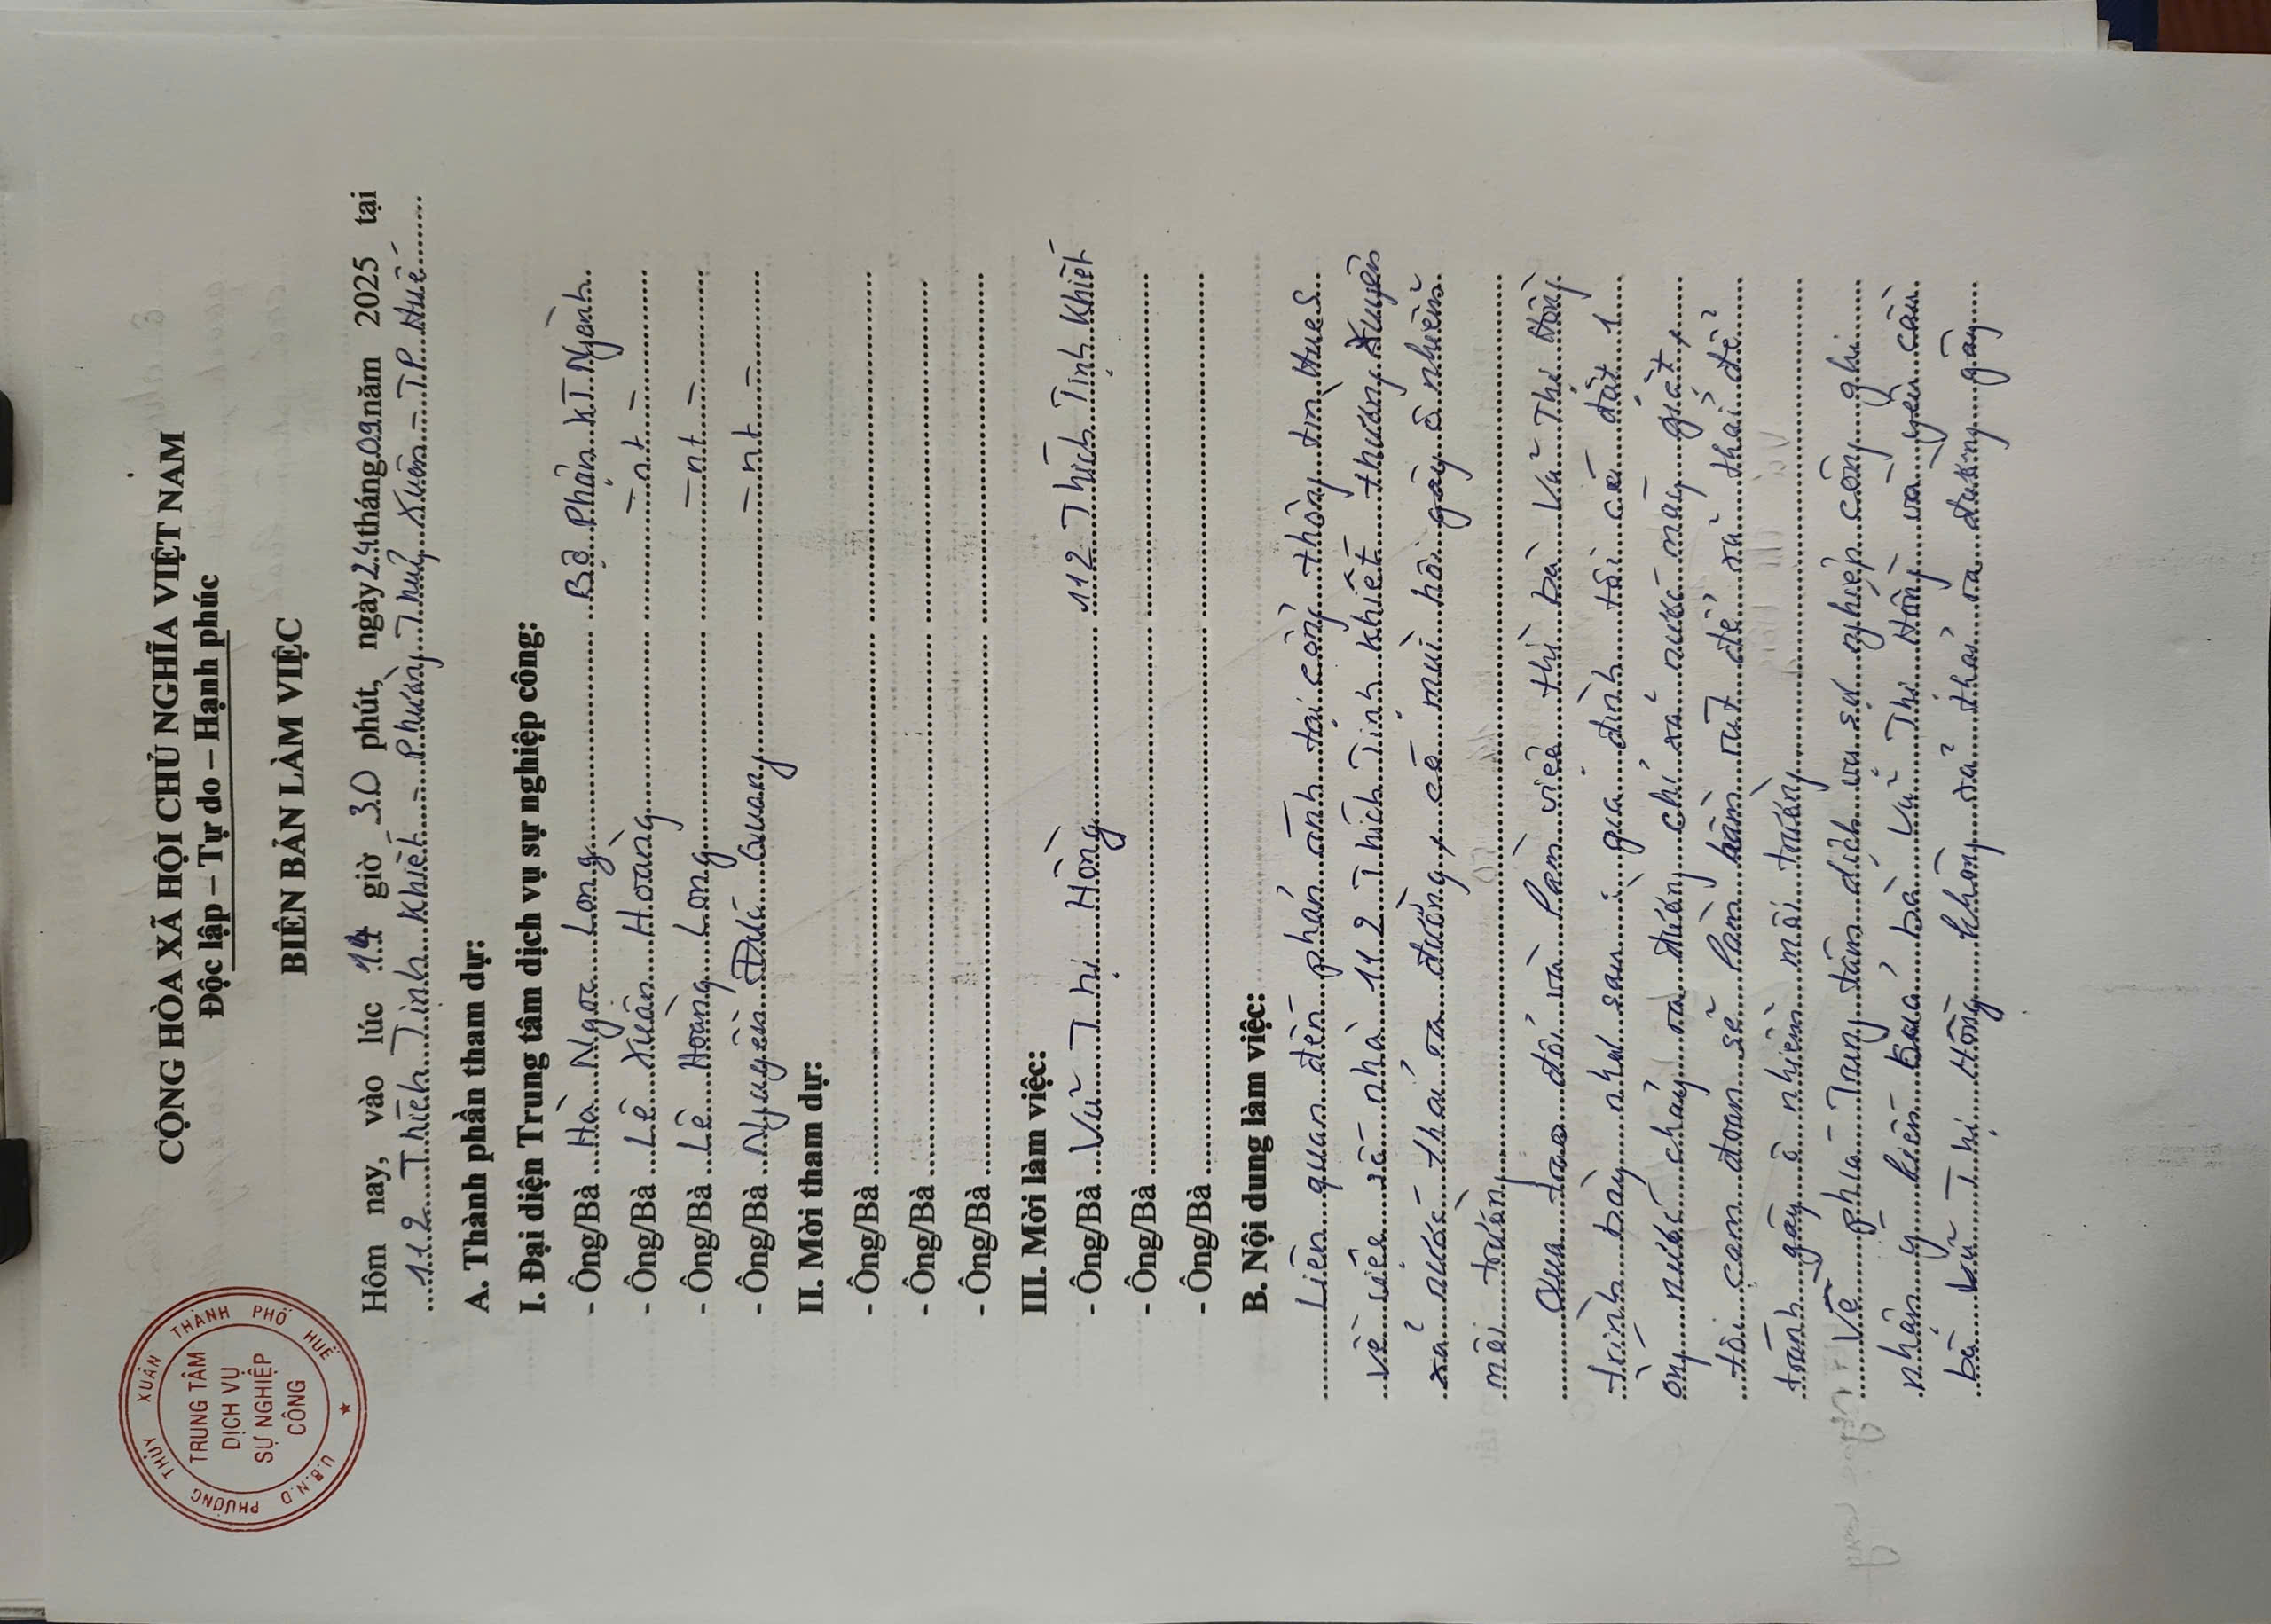 CỘNG HÒA XÃ HỘI CHỦ NGHĨA VIỆT NAM
Độc lập – Tự do – Hạnh phúc
U.B.N.D PHƯỜNG THỦY XUÂN THÀNH PHỐ HUẾ
TRUNG TÂM
DỊCH VỤ
SỰ NGHIỆP
CÔNG
BIÊN BẢN LÀM VIỆC
Hôm nay, vào lúc 14 giờ 30 phút, ngày 24 tháng 09 năm 2025 tại
112 Thích Tịnh Khiết - Phường Thuỷ Xuân - TP Huế
A. Thành phần tham dự:
I. Đại diện Trung tâm dịch vụ sự nghiệp công:
- Ông/Bà Hà Ngọc Long Bộ Phận KT Ngành
- Ông/Bà Lê Xuân Hoàng - nt -
- Ông/Bà Lê Hoàng Long - nt -
- Ông/Bà Nguyễn Đức Quang - nt -
II. Mời tham dự:
- Ông/Bà
- Ông/Bà
- Ông/Bà
III. Mời làm việc:
- Ông/Bà Vũ Thị Hồng 112 Thích Tịnh Khiết
- Ông/Bà
- Ông/Bà
B. Nội dung làm việc:
Liên quan đến phản ánh tại cổng thông tin HueS
Về việc số nhà 112 Thích Tịnh Khiết thường xuyên
xả nước thải ra đường, có mùi hôi gây ô nhiễm
môi trường
Qua trao đổi và làm việc thì bà Vũ Thị Hồng
trình bày như sau: gia đình tôi có đặt 1
ống nước chảy ra đường chỉ xả nước máy giặt,
tôi cam đoan sẽ làm hầm rút để xả thải để
tránh gây ô nhiễm môi trường
Về phía Trung tâm dịch vụ sự nghiệp công ghi
nhận ý kiến của bà Vũ Thị Hồng và yêu cầu
bà Vũ Thị Hồng không xả thải ra đường gây